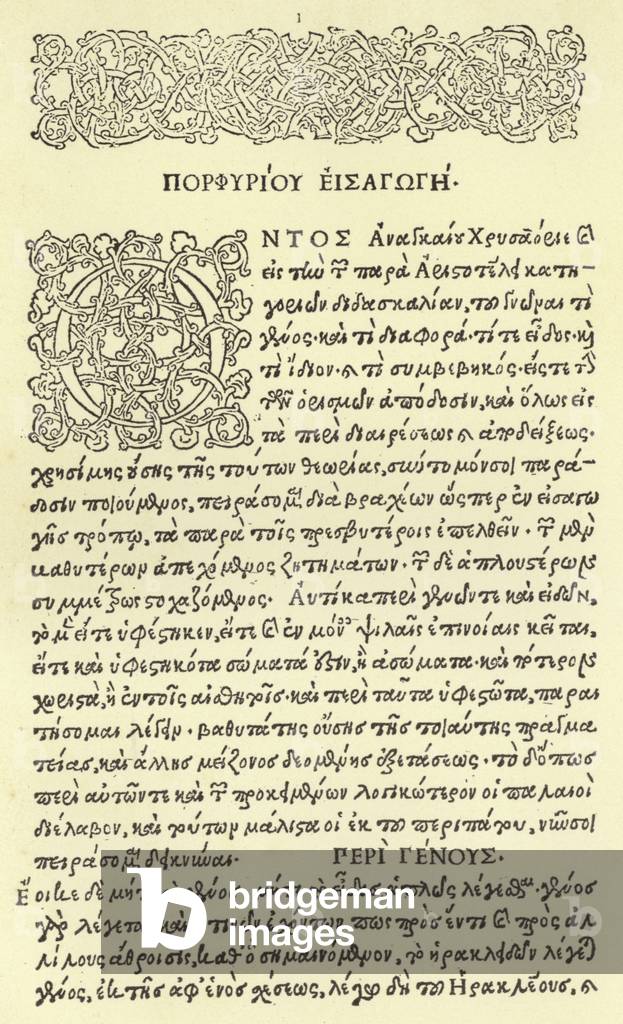 1
ΠΟΡΦΥΡΊΟΥ ΕἸΣΑΓΩΓΉ·
ΟΝΤΟΣ Ἀναγκαίου Χρυσαόριε καὶ
εἰς τὴν τῶν παρὰ Ἀριστοτέλει κατη–
γοριῶν διδασκαλίαν, τοῦ γνῶναι τί
γένος· καὶ τί διαφορά· τί τε εἶδος· καὶ
τί ἴδιον· καὶ τί συμβεβηκός· εἴς τε τὴν
τῶν ὁρισμῶν ἀπόδοσιν, καὶ ὅλως εἰς
τὰ περὶ διαιρέσεως καὶ ἀποδείξεως·
χρησίμης οὔσης τῆς τούτων θεωρίας, σύντομόν σοι παρά–
δοσιν ποιούμενος, πειράσομαι διὰ βραχέων ὥς περ ἐν εἰσαγω
γῆς τρόπῳ, τὰ παρὰ τοῖς πρεσβυτέροις ἐπελθεῖν· τῶν μὲν
βαθυτέρων ἀπεχόμενος ζητημάτων· τῶν δὲ ἁπλουστέρων
συμμέτρως στοχαζόμενος· Αὐτίκα περὶ γενῶν τε καὶ εἰδῶν,
τὸ μὲν εἴτε ὑφέστηκεν, εἴτε καὶ ἐν μόναις ψιλαῖς ἐπινοίαις κεῖται,
εἴτε καὶ ὑφεστηκότα σώματά ἐστιν, ἢ ἀσώματα· καὶ πότερον
χωριστὰ, ἢ ἐν τοῖς αἰσθητοῖς· καὶ περὶ ταῦτα ὑφεστῶτα, παραι
τήσομαι λέγειν· βαθυτάτης οὔσης τῆς τοιαύτης πραγμα
τείας, καὶ ἄλλης μείζονος δεομένης ἐξετάσεως· τὸ δ' ὅπως
περὶ αὐτῶν τε καὶ τῶν προκειμένων λογικώτερον οἱ παλαιοὶ
διέλαβον, καὶ τούτων μάλιστα οἱ ἐκ τοῦ περιπάτου, νῦν σοι
πειράσομαι δεικνύναι· ΠΕΡῚ ΓΈΝΟΥΣ·
Ἔοικε δὲ μήτε τὸ γένος μήτε τὸ εἶδος ἁπλῶς λέγεσθαι· γένος
γὰρ λέγεται καὶ ἡ τινῶν ἐχόντων πως πρὸς ἕν τι καὶ πρὸς ἀλ
λήλους ἄθροισις, καθ' ὃ σημαινόμενον, τὸ ἡρακλειδῶν λέγεται
γένος, ἐκ τῆς ἀφ' ἑνὸς σχέσεως, λέγω δὴ τοῦ Ἡρακλέους, καὶ
b bridgeman
images